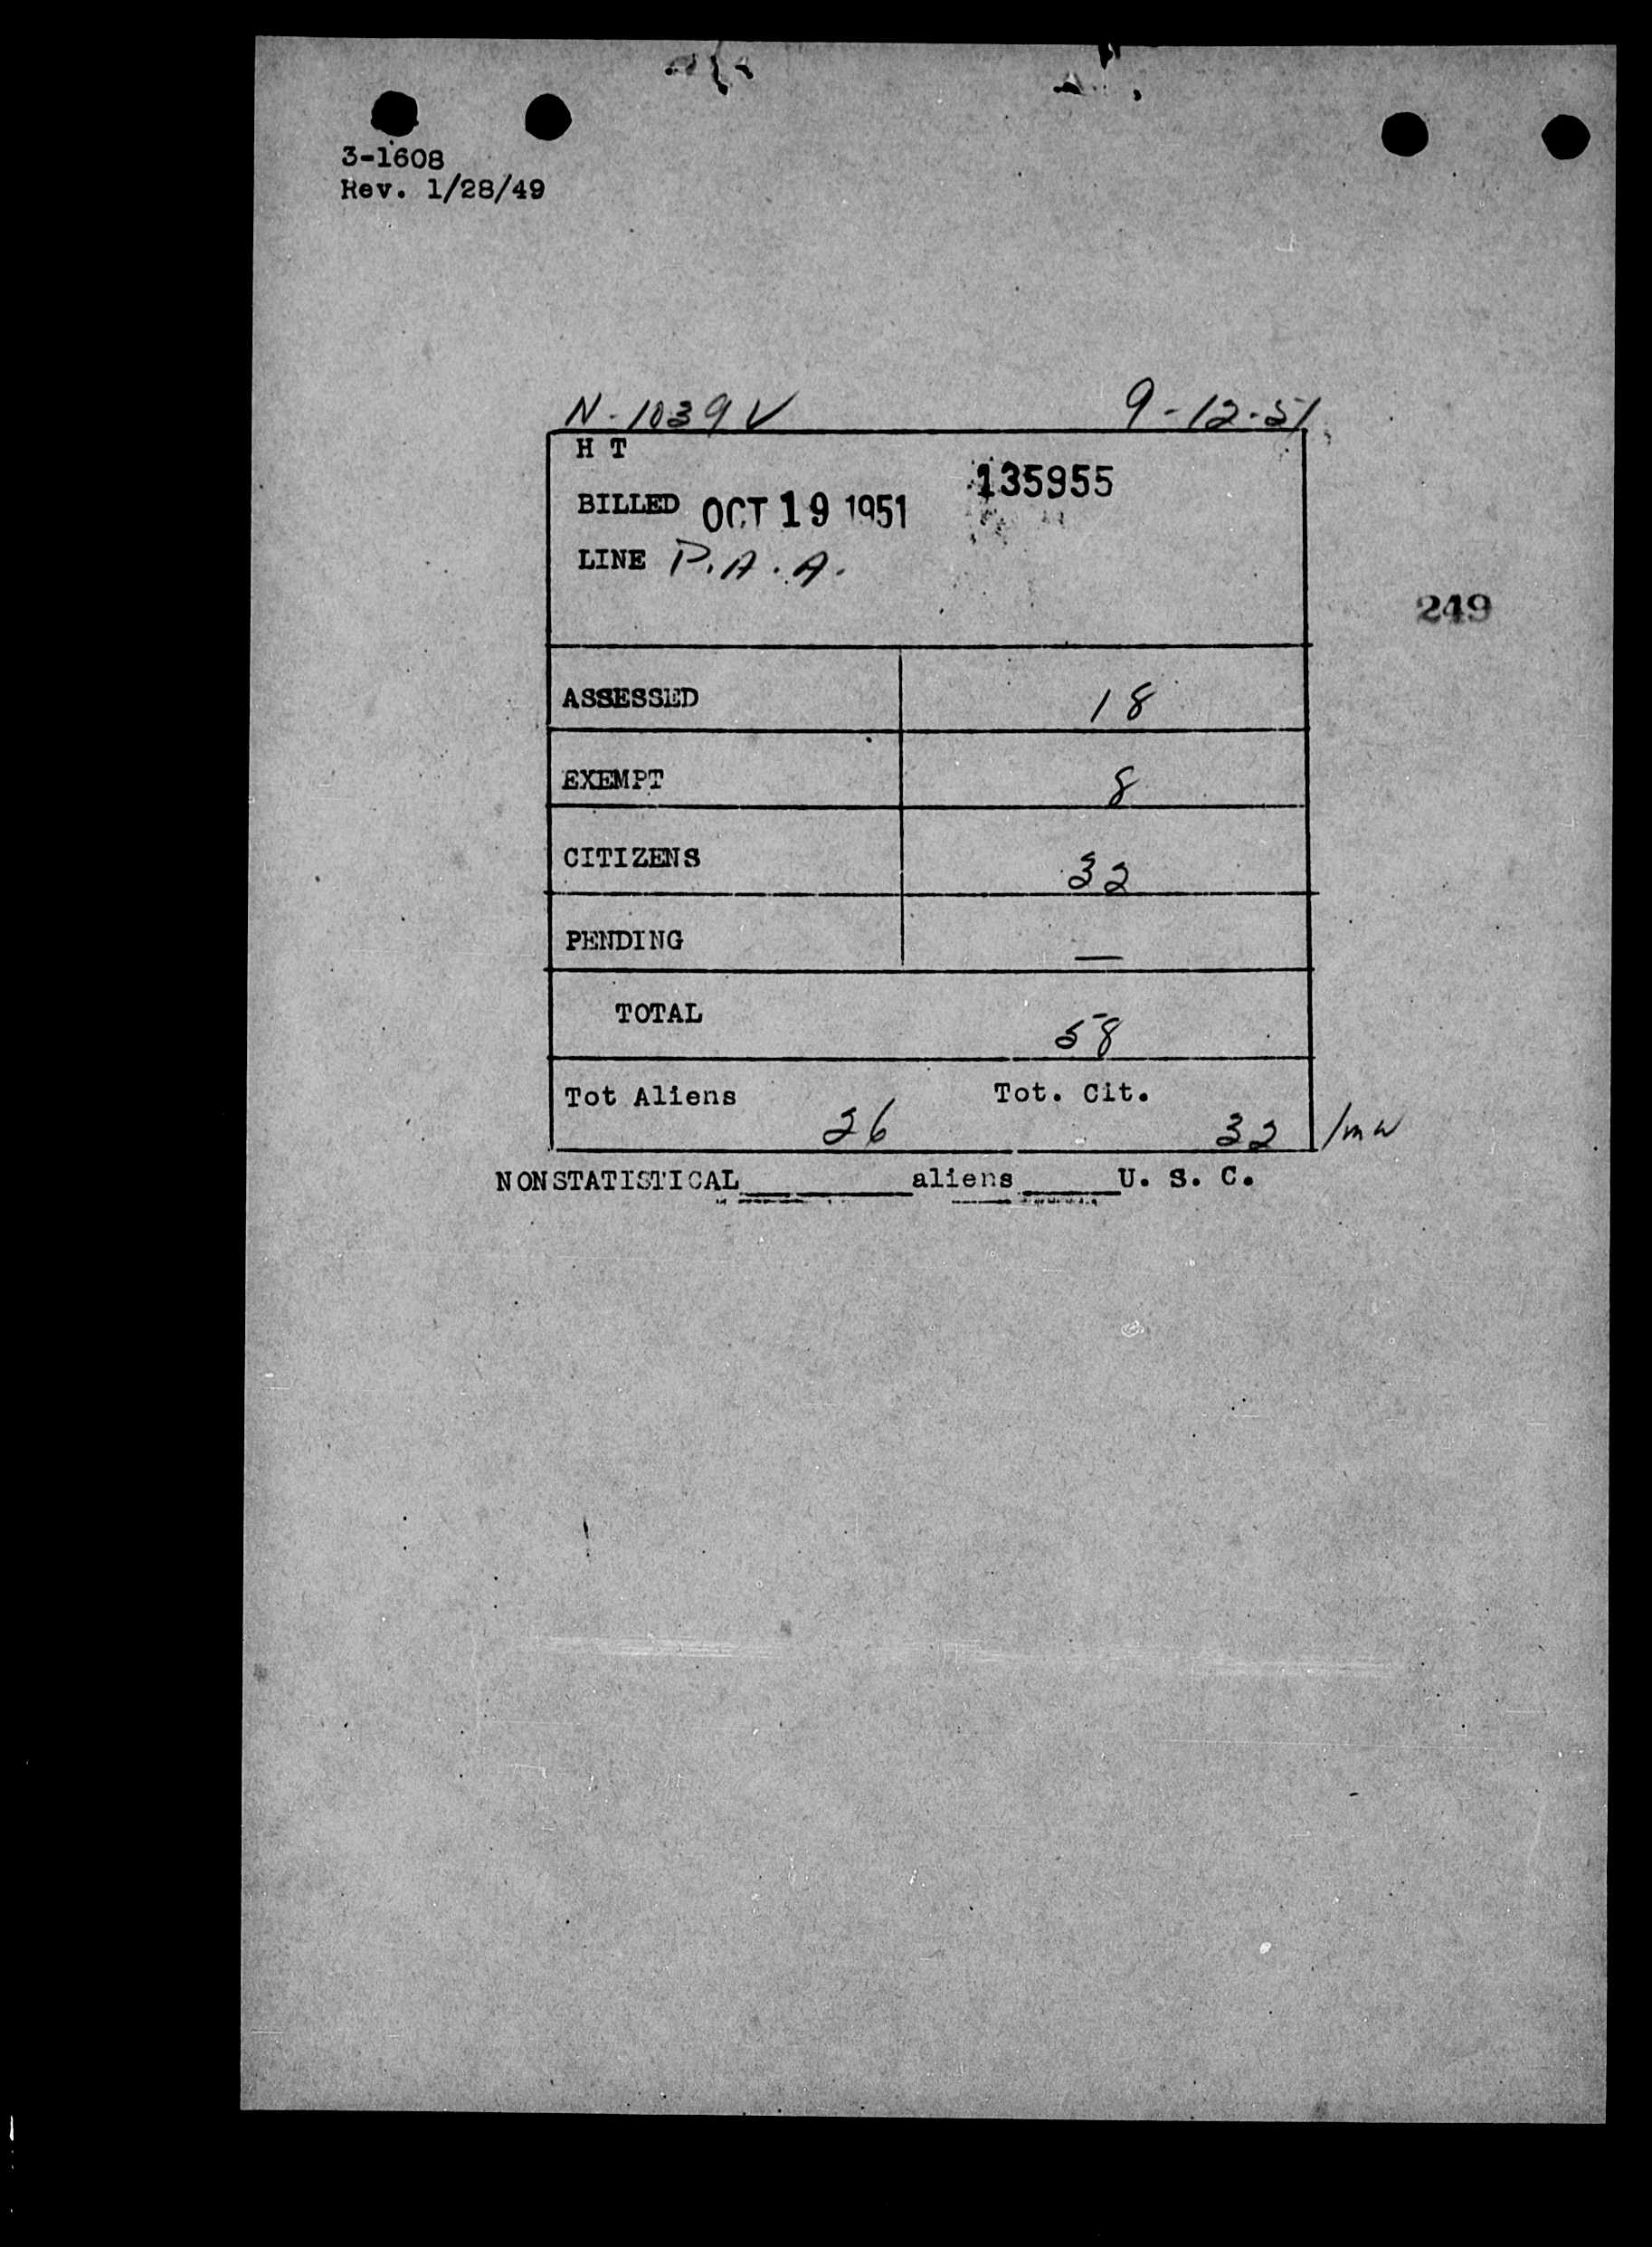 3-1608
Rev. 1/28/49
N-1039V 9-12-51
H T
135955
BILLED OCT 19 1951
LINE P.A.A.
249
ASSESSED 18
EXEMPT 8
CITIZENS 32
PENDING —
TOTAL 58
Tot Aliens 26 Tot. Cit. 32 /mw
NONSTATISTICAL______aliens____U. S. C.